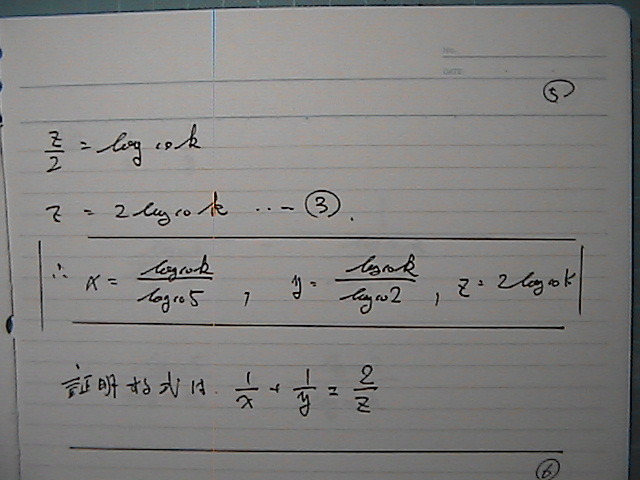 NO.
DATE
⑤
z/2 = log₁₀k
z = 2log₁₀k ・・・ ③.
∴ x = log₁₀k/log₁₀5 , y = log₁₀k/log₁₀2 , z = 2log₁₀k
証明する式は. 1/x + 1/y = 2/z
⑥